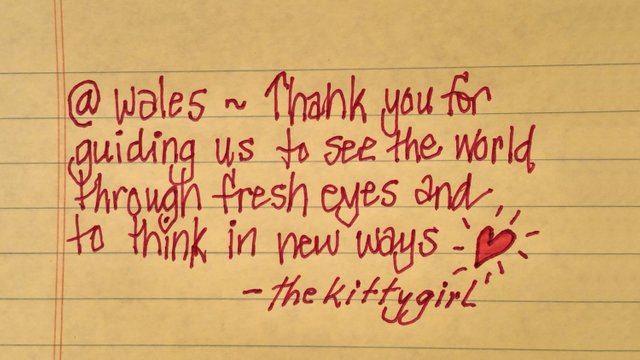 @wales ~ Thank you for
guiding us to see the world
through fresh eyes and
to think in new ways
- the kittygirl